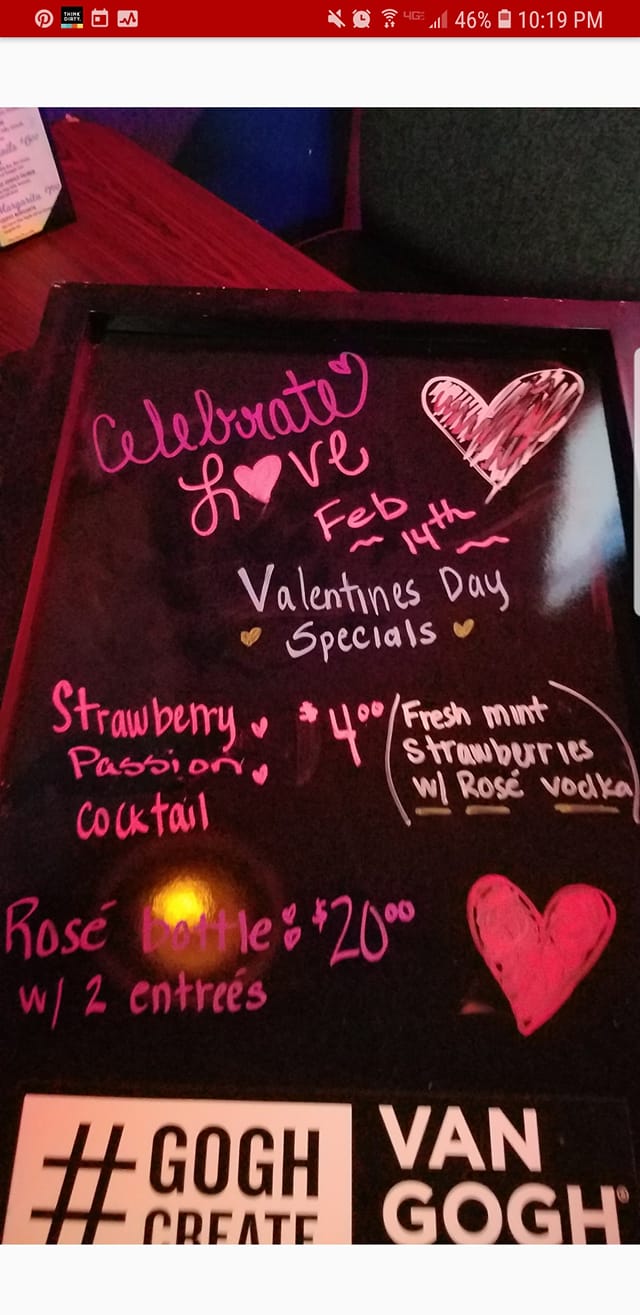 THINK
DIRTY.
4GE 46% 10:19 PM
Margarita
Celebrate
Love
Feb
14th
Valentines Day
Specials
Strawberry $4.00 (Fresh mint
Passion strawberries
Cocktail w/ Rosé vodka)
Rosé bottle: $20.00
w/ 2 entreés
#GOGH
CREATE
VAN
GOGH®